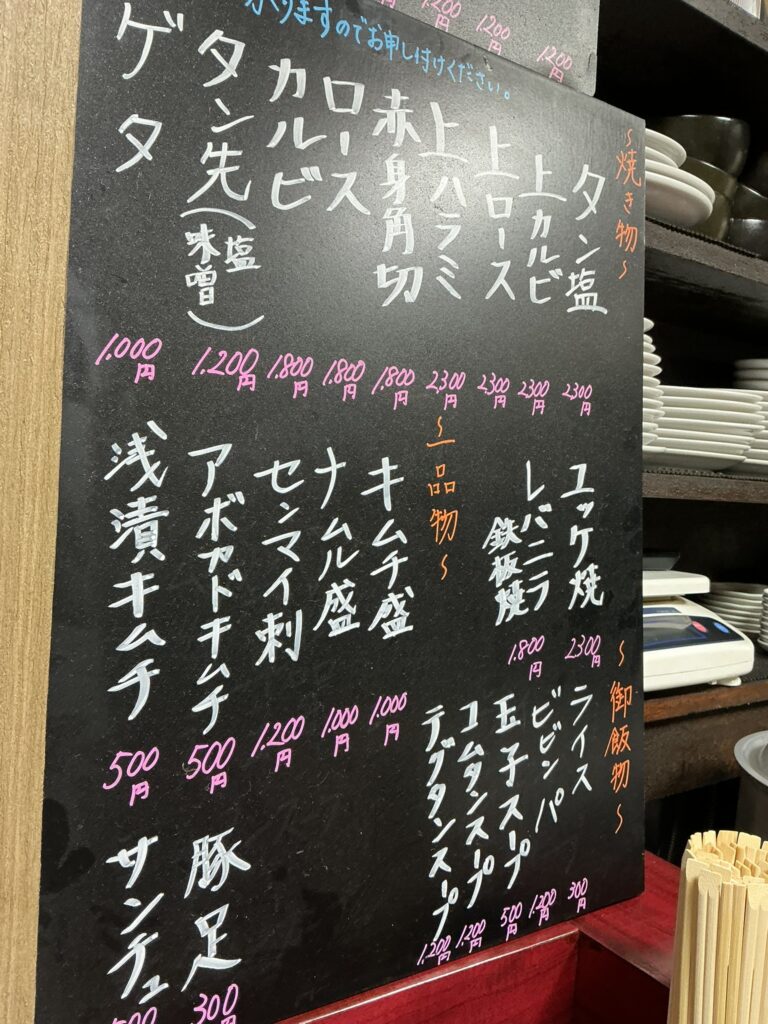 かりますのでお申し付けください。
1200
1200
1200円
〜焼き物〜
タン塩 2300円
上カルビ 2300円
上ロース 2300円
上ハラミ 2300円
赤身角切 1.800円
ロース 1.800円
カルビ 1.800円
タン先(塩味噌) 1.200円
ゲタ 1.000円
ユッケ焼 2300円
レバニラ鉄板焼 1.800円
〜一品物〜
キムチ盛 1.000円
ナムル盛 1.000円
センマイ刺 1.200円
アボカドキムチ 500円
浅漬キムチ 500円
〜御飯物〜
ライス 300円
ビビンパ 1.200円
玉子スープ 500円
コムタンスープ 1.200円
テグタンスープ 1.200円
豚足 300円
サンチュ 500